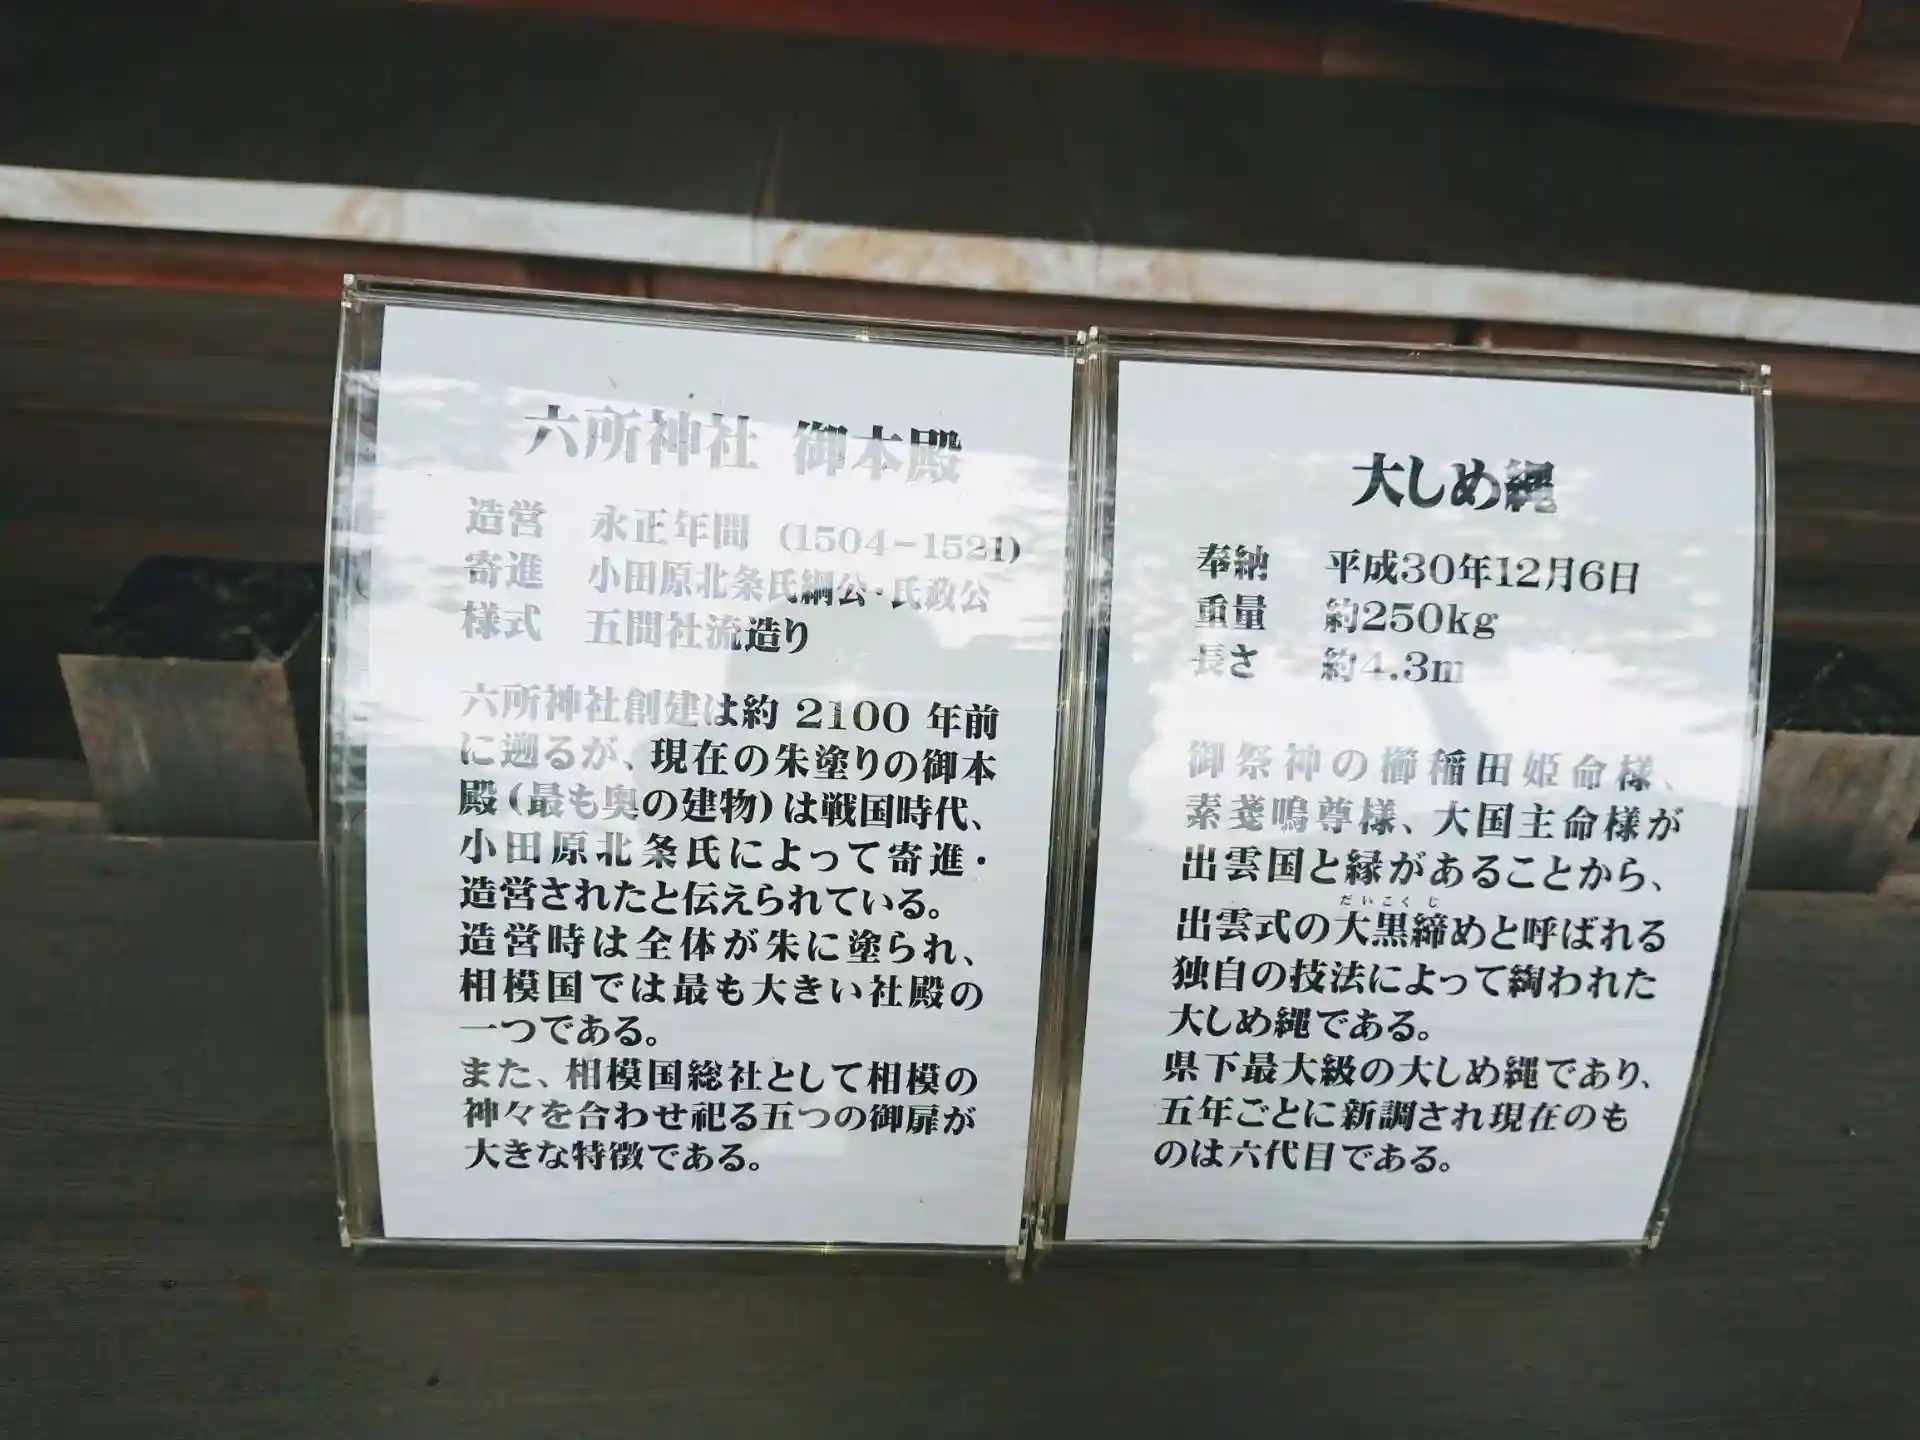 六所神社 御本殿
造営 永正年間 (1504−1521)
寄進 小田原北条氏綱公・氏政公
様式 五間社流造り
六所神社創建は約 2100 年前
に遡るが、現在の朱塗りの御本
殿(最も奥の建物)は戦国時代、
小田原北条氏によって寄進・
造営されたと伝えられている。
造営時は全体が朱に塗られ、
相模国では最も大きい社殿の
一つである。
また、相模国総社として相模の
神々を合わせ祀る五つの御扉が
大きな特徴である。
大しめ縄
奉納 平成30年12月6日
重量 約250kg
長さ 約4.3m
御祭神の櫛稲田姫命様、
素戔嗚尊様、大国主命様が
出雲国と縁があることから、
だいこくじ
出雲式の大黒締めと呼ばれる
独自の技法によって綯われた
大しめ縄である。
県下最大級の大しめ縄であり、
五年ごとに新調され現在のも
のは六代目である。